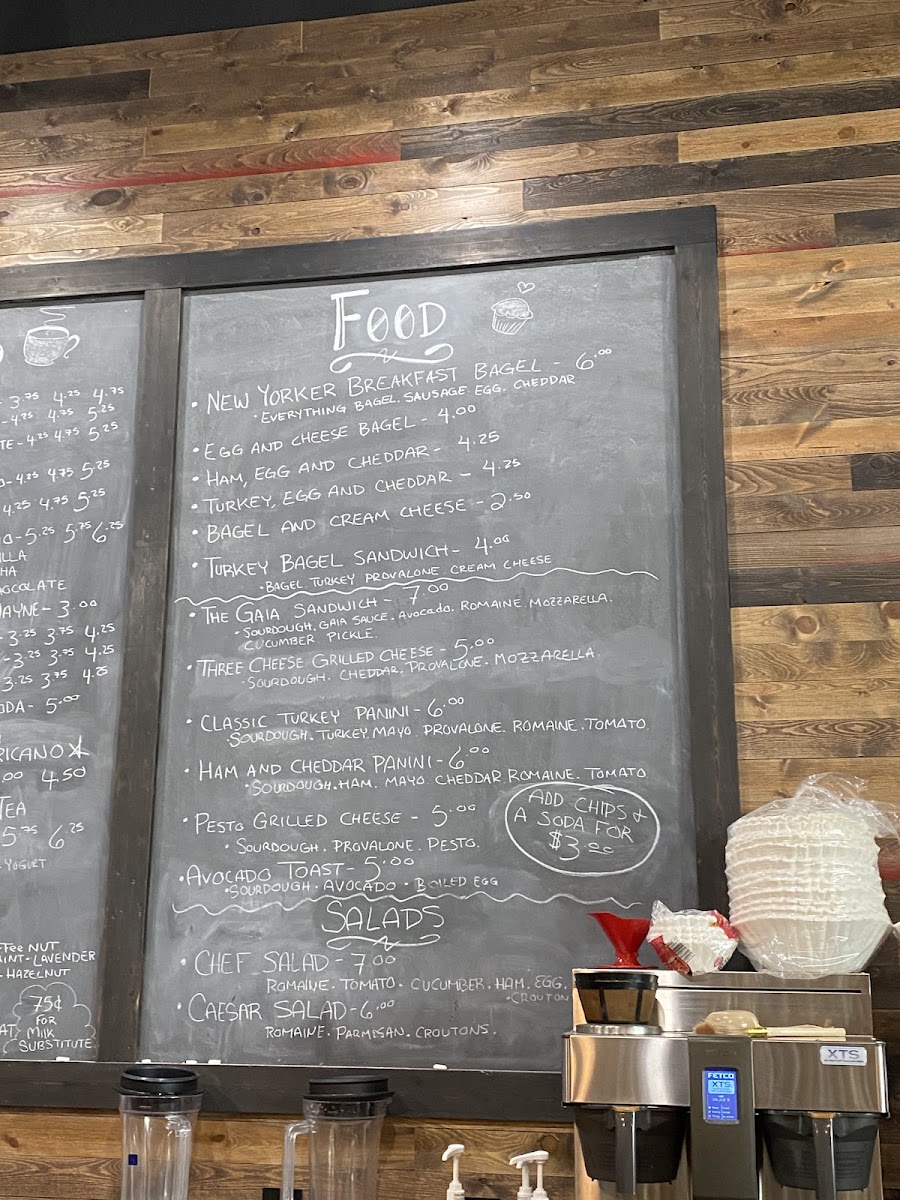 3.75 4.25 4.75
-4.25 4.75 5.25
TE-4.25 4.75 5.25
-4.25 4.75 5.25
4.25 4.75 5.25
-5.25 5.75 6.25
AYNE-3.00
-3.25 3.75 4.25
-3.25 3.75 4.25
3.25 3.75 4.25
ODA-5.00
RICANO
.00 4.50
TEA
5.75 6.25
-YOGURT
NUT
INT-LAVENDER
-HAZELNUT
75¢
FOR
MILK
SUBSTITUTE
FOOD
• NEW YORKER BREAKFAST BAGEL - 6.00
• EVERYTHING BAGEL. SAUSAGE. EGG. CHEDDAR
• EGG AND CHEESE BAGEL - 4.00
• HAM, EGG AND CHEDDAR - 4.25
• TURKEY, EGG AND CHEDDAR - 4.25
• BAGEL AND CREAM CHEESE - 2.50
• TURKEY BAGEL SANDWICH - 4.00
• BAGEL TURKEY PROVALONE. CREAM CHEESE
• THE GAIA SANDWICH - 7.00
• SOURDOUGH. GAIA SAUCE. AVOCADO. ROMAINE MOZZARELLA.
CUCUMBER PICKLE.
• THREE CHEESE GRILLED CHEESE - 5.00
• SOURDOUGH. CHEDDAR. PROVALONE. MOZZARELLA.
• CLASSIC TURKEY PANINI - 6.00
• SOURDOUGH. TURKEY. MAYO. PROVALONE. ROMAINE. TOMATO.
• HAM AND CHEDDAR PANINI - 6.00
• SOURDOUGH. HAM. MAYO. CHEDDAR ROMAINE. TOMATO
• PESTO GRILLED CHEESE - 5.00
• SOURDOUGH. PROVALONE. PESTO.
ADD CHIPS +
A SODA FOR
$3.00
• AVOCADO TOAST - 5.00
• SOURDOUGH • AVOCADO • BOILED EGG
SALADS
• CHEF SALAD - 7.00
ROMAINE. TOMATO. CUCUMBER. HAM. EGG.
• CROUTON
• CAESAR SALAD - 6.00
ROMAINE. PARMISAN. CROUTONS.
XTS
FETCO
XTS